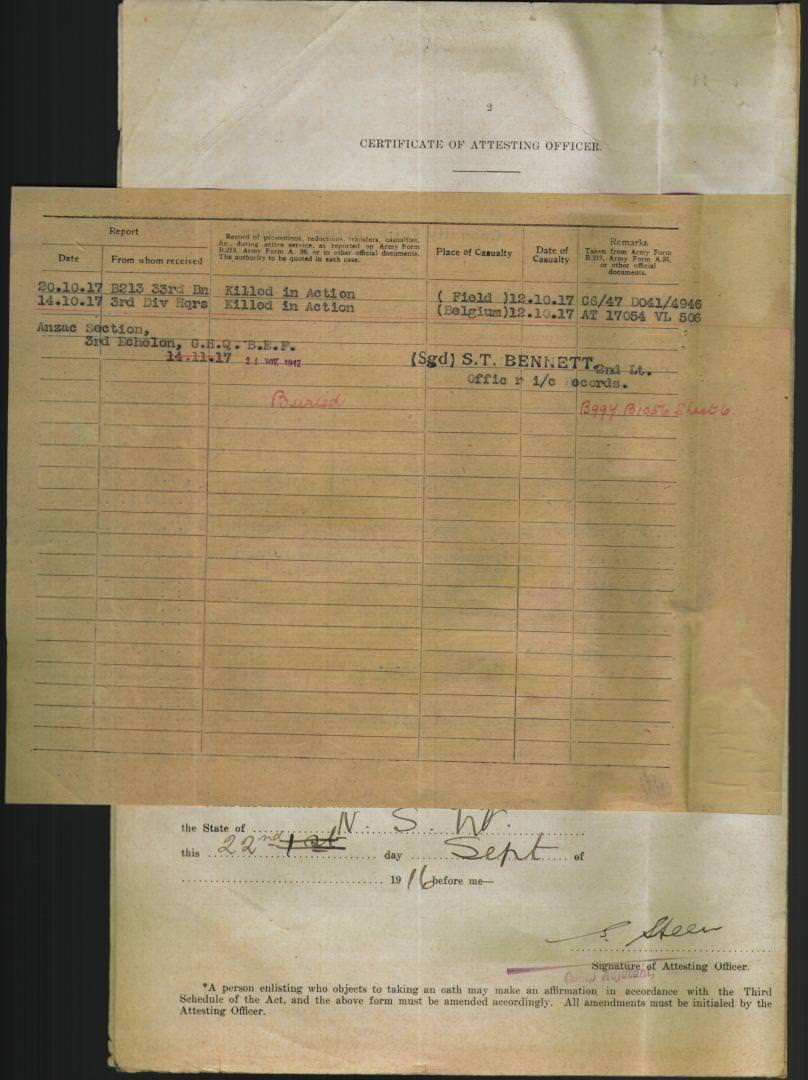 2
CERTIFICATE OF ATTESTING OFFICER.
Report
Date
From whom received
Record of promotions, reductions, transfers, casualties,
&c., during active service, as reported on Army Form
B.213, Army Form A. 36, or in other official documents.
The authority to be quoted in each case.
Place of Casualty
Date of
Casualty
Remarks
Taken from Army Form
B.213, Army Form A.36,
or other official
documents.
20.10.17 B213 33rd Bn Killed in Action ( Field )12.10.17 C6/47 D041/4946
14.10.17 3rd Div Hqrs Killed in Action (Belgium)12.10.17 AT 17054 VL 506
Anzac Section,
3rd Echelon, G.H.Q. B.E.F.
14.11.17
(Sgd) S.T. BENNETT 2nd Lt.
Offic r i/c ecords.
Buried
B994 B1056 Sheet 6
the State of N. S. W.
this 22nd 1st day Sept of
1916 before me—
S. Steen
Signature of Attesting Officer.
Camp Adjutant,
*A person enlisting who objects to taking an oath may make an affirmation in accordance with the Third
Schedule of the Act, and the above form must be amended accordingly. All amendments must be initialed by the
Attesting Officer.